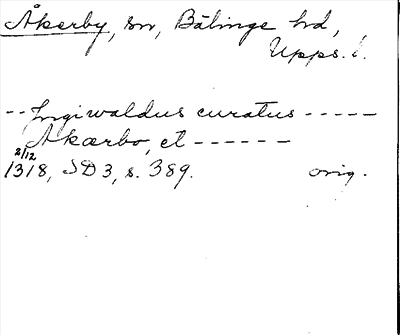 Åkerby, sn, Bälinge hd,
Upps. l.
-- Ingiwaldus curatus -----
Akærbo, et ------
2/12
1318, SD 3, s. 389. orig.